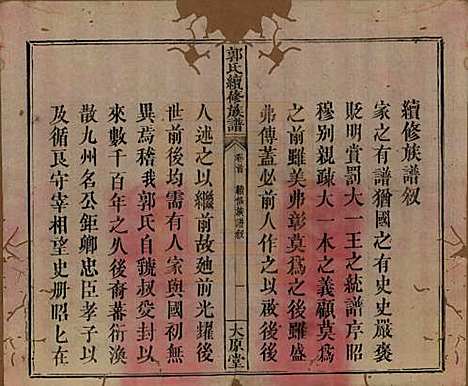 續修族譜叙
家之有譜猶國之有史史嚴褒
貶明賞罰大一王之統譜序昭
穆別親疎大一本之義顧莫爲
之前雖美弗彰莫爲之後雖盛
弗傳蓋必前人作之以
郭氏續修族譜
卷首
續修族譜叙
一
太原堂
人述之以繼前故廸前光耀後
世前後均須有人家與國初無
異焉稽我郭氏自虢叔受封以
來數千百年之久後裔蕃衍渙
散九州名公鉅卿忠臣孝子以
及循良守宰相望史册昭匕在